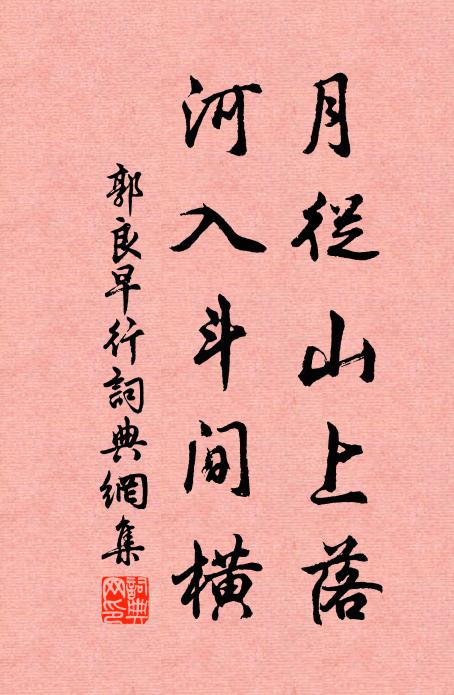 月從山上落
河入斗間橫
郭良早行詞典網集
詞典
网印